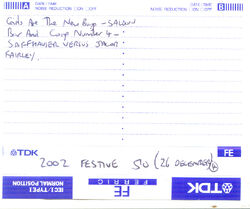 A DATE/TIME
NOISE REDUCTION □ON □OFF
DATE/TIME B
NOISE REDUCTION □ON □OFF
Girls Are The New Boys -
Bar And Coup Number 4 -
VERSUS
FAIRLEY.
TDK
FE
2002 FESTIVE 50 (26 DECEMBER)
IEC I/TYPE I
NORMAL POSITION
FE
FERRIC
TDK